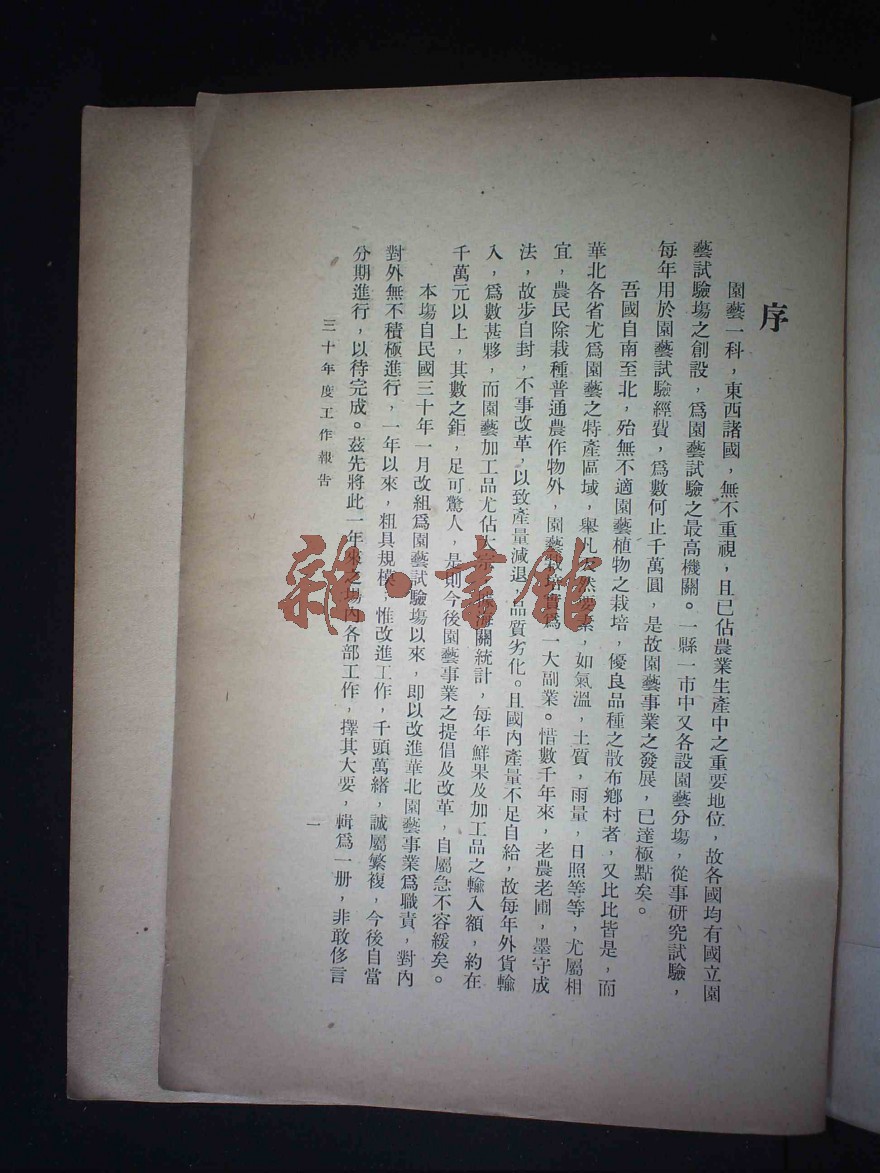 序
園藝一科，東西諸國，無不重視，且已佔農業生產中之重要地位，故各國均有國立園
藝試驗塲之創設，爲園藝試驗之最高機關。一縣一市中又各設園藝分塲，從事研究試驗，
每年用於園藝試驗經費，爲數何止千萬圓，是故園藝事業之發展，已達極點矣。
吾國自南至北，殆無不適園藝植物之栽培，優良品種之散布鄉村者，又比比皆是，而
華北各省尤爲園藝之特產區域，舉凡天然要素，如氣溫，土質，雨量，日照等等，尤屬相
宜，農民除栽種普通農作物外，園藝栽培實爲一大副業。惜數千年來，老農老圃，墨守成
法，故步自封，不事改革，以致產量減退，品質劣化。且國內產量不足自給，故每年外貨輸
入，爲數甚夥，而園藝加工品尤佔大宗，海關統計，每年鮮果及加工品之輸入額，約在
千萬元以上，其數之鉅，足可驚人，是則今後園藝事業之提倡及改革，自屬急不容緩矣。
本塲自民國三十年一月改組爲園藝試驗塲以來，即以改進華北園藝事業爲職責，對內
對外無不積極進行，一年以來，粗具規模，惟改進工作，千頭萬緒，誠屬繁複，今後自當
分期進行，以待完成。茲先將此一年來之塲內各部工作，擇其大要，輯爲一册，非敢侈言
三十年度工作報告
一
雜·書館